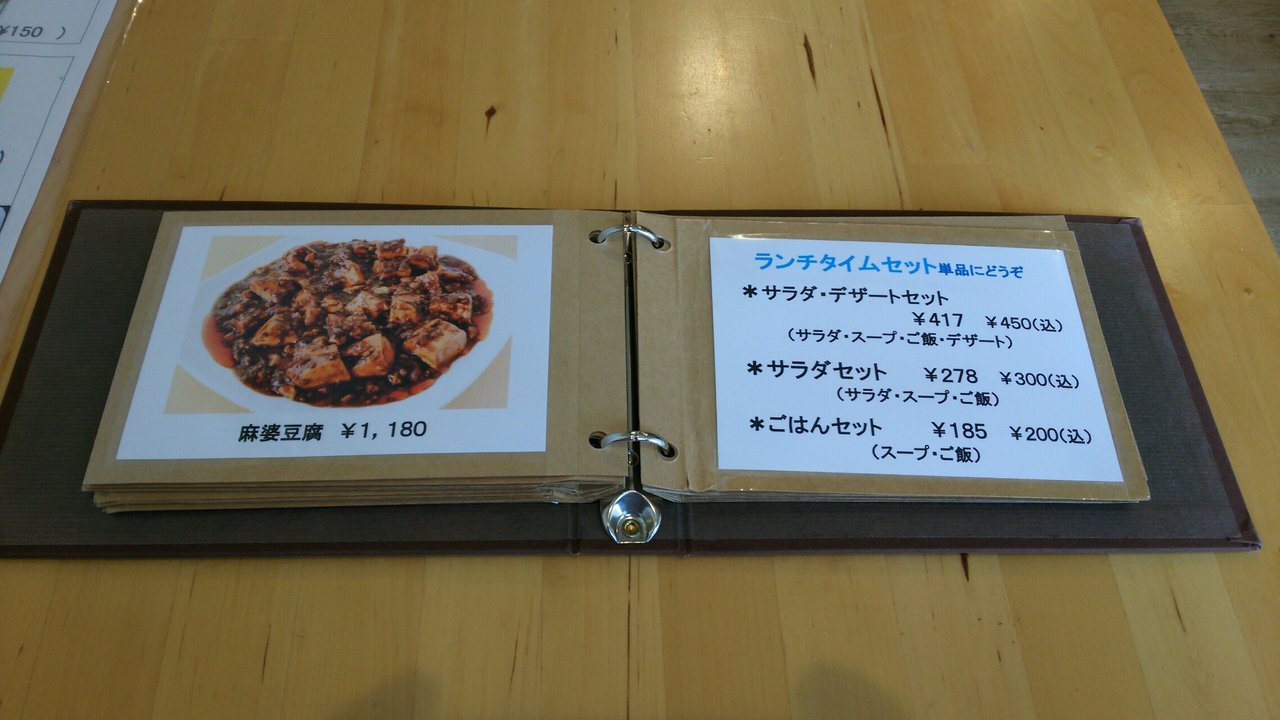 ¥150 )
麻婆豆腐 ¥1,180
ランチタイムセット単品にどうぞ
＊サラダ・デザートセット
¥417 ¥450(込)
(サラダ・スープ・ご飯・デザート)
＊サラダセット ¥278 ¥300(込)
(サラダ・スープ・ご飯)
＊ごはんセット ¥185 ¥200(込)
(スープ・ご飯)